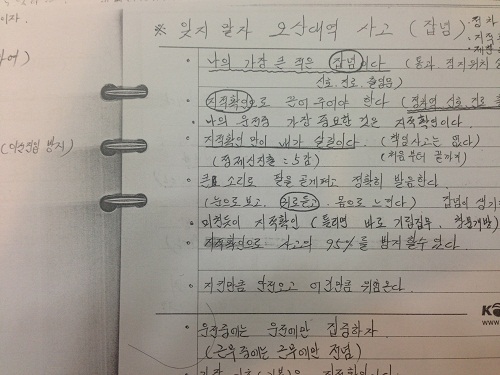 이자.
하여)
(이순신을 방지)
※ 잊지 말자 오산대역 사고 (잡념)
· 정차
· 지적
· 제한
· 나의 가장 큰 적은 잡념이다 (통과, 정지위치
신호, 진로, 출입문
· 지적확인으로 끝이 주어야 한다 (정차역 신호 진로
· 나의 운전중 가장 중요한 것은 지적확인이다.
· 지적확인 만이 내가 살길이다. (책임사고는 없다)
(정체신진출 = 5감) (처음부터 끝까지)
· 큰 소리로 팔을 곧게펴고 정확히 발음한다.
(눈으로 보고, 귀로듣고, 몸으로 느낀다) 잡념이 생기
· 지적확인 (틀리면 바로
· 지적확인으로 사고의 95%를 방지할수 있다.
· 지킨만큼 안전오고 어긴만큼 위험온다.
K
www.
· 운전중에는 운전에만 집중하자
(근무중에는 근무에만 전념)